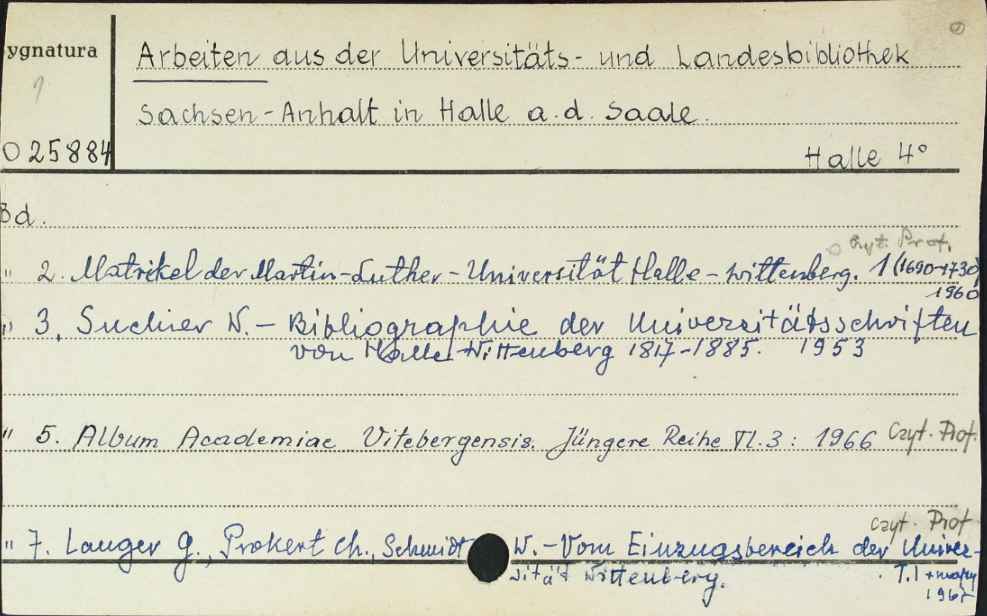 ygnatura
Arbeiten aus der Universitäts- und Landesbibliothek
Sachsen-Anhalt in Halle a.d. Saale.
O 25884
Halle 4°
Bd.
Czyt. Prof.
" 2. Matrikel der Martin-Luther-Universität Halle-Wittenberg. 1 (1690-1730)
1960
" 3. Suchier W. - Bibliographie der Universitätsschriften
von Halle-Wittenberg 1817-1885. 1953
" 5. Album Academiae Vitebergensis. Jüngere Reihe Tl. 3: 1966 Czyt. Prof.
Czyt. Prof
" 7. Langer G., Prokert Ch., Schmidt W. - Vom Einzugsbereich der Univer-
sität Wittenberg. T.1 + mapy